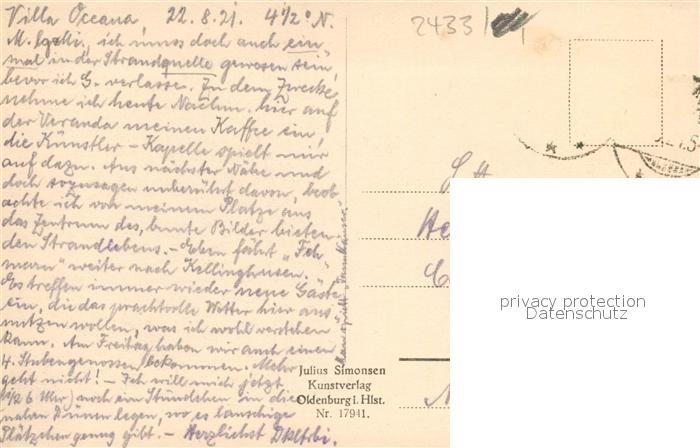 Villa Oceana, 22.8.21. 4½° N.
M. ich muss doch auch ein-
mal in der Strandquelle gewesen sein,
bevor ich G. verlasse. Zu dem Zwecke
nehme ich heute Nachm. hier auf
der Veranda meinen Kaffee ein,
die Künstler-Kapelle spielt mir
auf dazu. Aus nächster Nähe und
doch sozusagen unberührt davon, beob-
achte ich von meinem Platze aus
das Zentrum des, bunte Bilder bieten-
den Strandlebens. - Eben fährt "Feh-
marn" weiter nach Kellinghusen.
Es treffen immer wieder neue Gäste
ein, die das prachtvolle Wetter hier aus-
nutzen wollen, was ich wohl verstehen
kann. Am Freitag haben wir auch einen
4. Stubengenossen bekommen. Mehr
geht nicht! - Ich will mich jetzt
(½6 Uhr) noch ein Stündchen in die
nahen Dünen legen, wo es lauschige
Plätzchen genug gibt. - Herzlichst
2433
privacy protection
Datenschutz
Julius Simonsen
Kunstverlag
Oldenburg i. Hlst.
Nr. 17941.